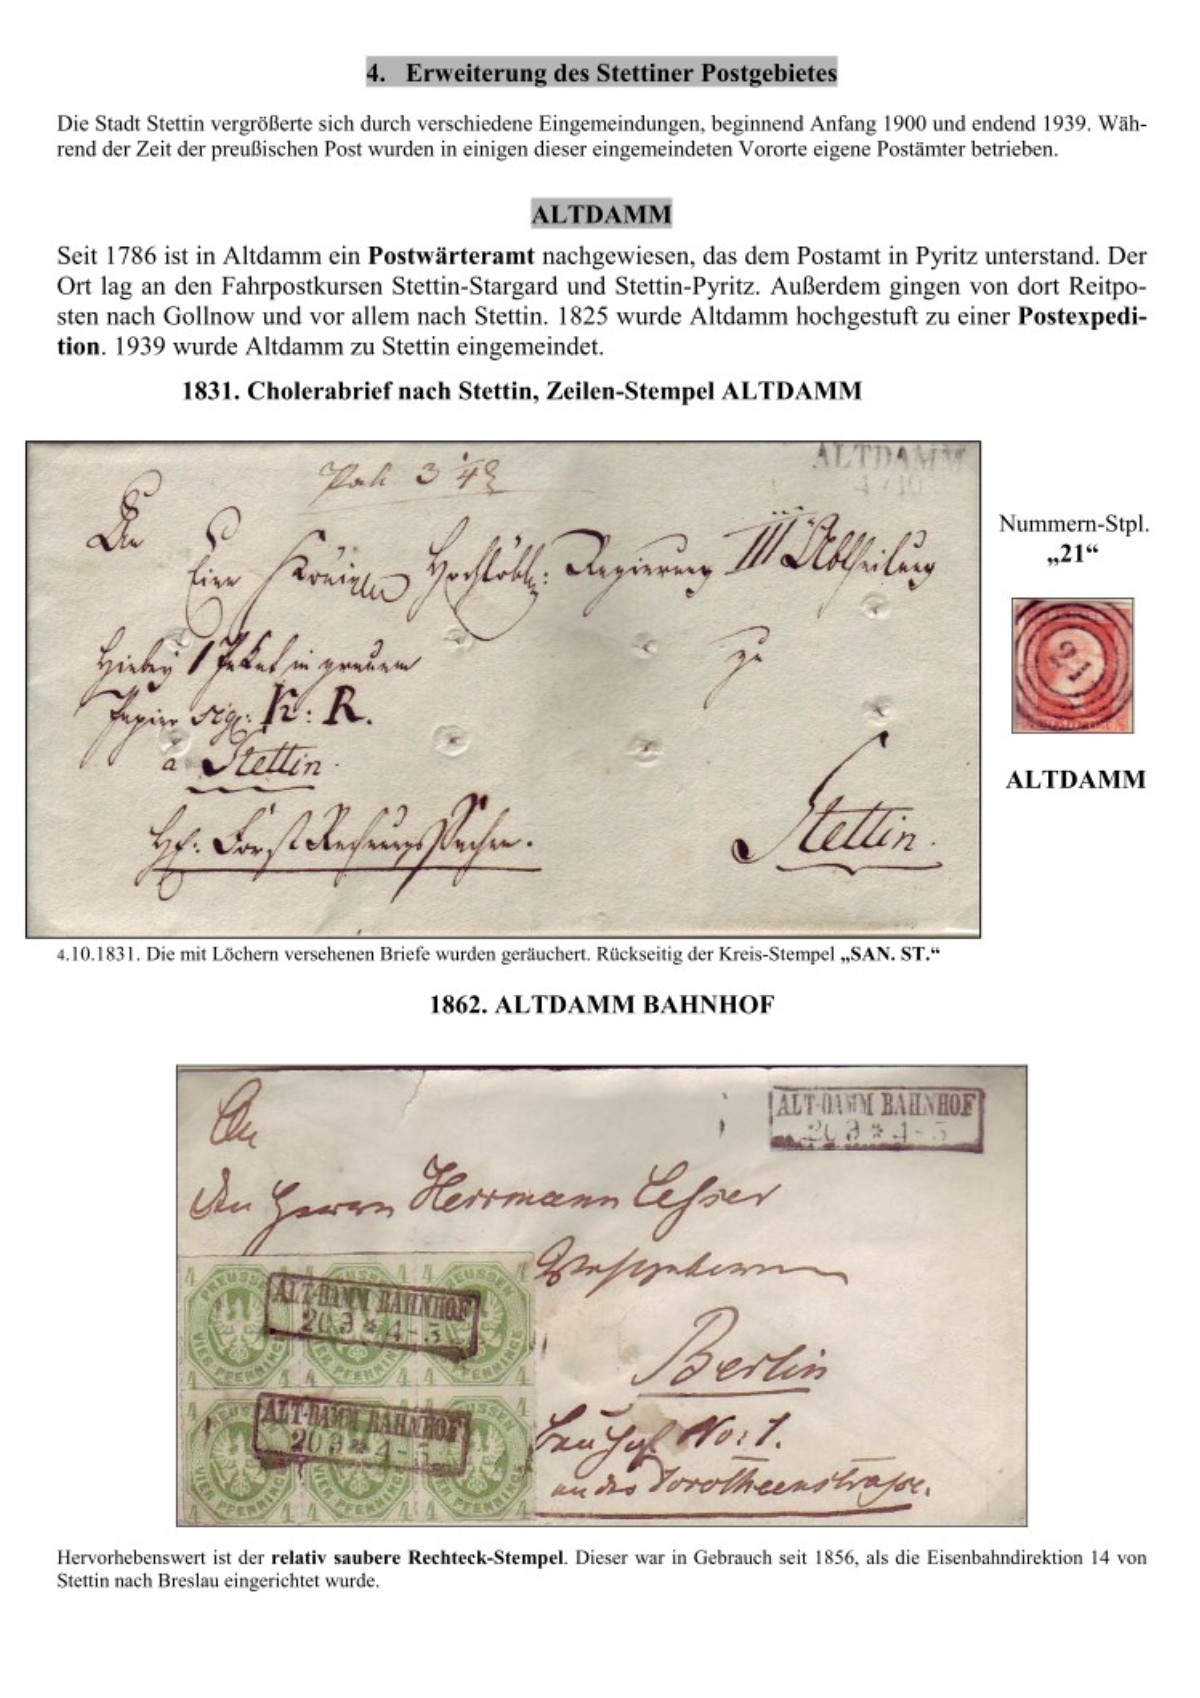 4. Erweiterung des Stettiner Postgebietes
Die Stadt Stettin vergrößerte sich durch verschiedene Eingemeindungen, beginnend Anfang 1900 und endend 1939. Wäh-
rend der Zeit der preußischen Post wurden in einigen dieser eingemeindeten Vororte eigene Postämter betrieben.
ALTDAMM
Seit 1786 ist in Altdamm ein Postwärteramt nachgewiesen, das dem Postamt in Pyritz unterstand. Der
Ort lag an den Fahrpostkursen Stettin-Stargard und Stettin-Pyritz. Außerdem gingen von dort Reitpo-
sten nach Gollnow und vor allem nach Stettin. 1825 wurde Altdamm hochgestuft zu einer Postexpedi-
tion. 1939 wurde Altdamm zu Stettin eingemeindet.
1831. Cholerabrief nach Stettin, Zeilen-Stempel ALTDAMM
ALTDAMM
4/10
An
Eine Königl. Hochlöbl: Regierung III Abtheilung
zu
Hiebey 1 Paket in grauem
Papier sig: K: R.
a Stettin.
Stettin.
Nummern-Stpl.
„21“
21
ALTDAMM
4.10.1831. Die mit Löchern versehenen Briefe wurden geräuchert. Rückseitig der Kreis-Stempel „SAN. ST.“
1862. ALTDAMM BAHNHOF
ALT-DAMM BAHNHOF
20 9 * 4-5
An
den Herrn Herrmann Lesser
Berlin
No: 1.
an der Dorotheenstrasse.
PREUSSEN
VIER PFENNINGE
4
ALT-DAMM BAHNHOF
20 9 * 4-5
ALT-DAMM BAHNHOF
20 9 * 4-5
Hervorhebenswert ist der relativ saubere Rechteck-Stempel. Dieser war in Gebrauch seit 1856, als die Eisenbahndirektion 14 von
Stettin nach Breslau eingerichtet wurde.